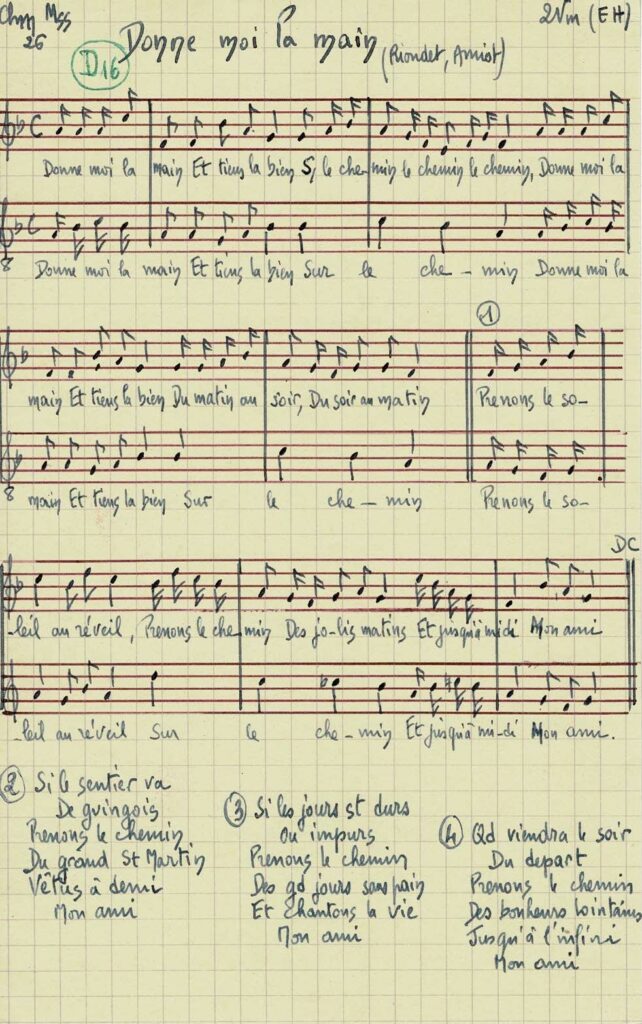 Chm Mss
26
2Vm (EH)
D16
Donne moi la main
(Riondet, Amiot)
Donne moi la main Et tiens la bien S, le che min le chemin le chemin, Donne moi la
Donne moi la main Et tiens la bien Sur le che - min Donne moi la
1
main Et tiens la bien Du matin au soir, Du soir au matin Prenons le so-
main Et tiens la bien Sur le che - min Prenons le so-
DC
-leil au réveil, Prenons le che min Des jo-lis matins Et jusqu'à midi Mon ami
-leil au réveil Sur le che - min Et jusqu'à mi-di Mon ami.
2 Si le sentier va
De guingois
Prenons le chemin
Du grand St Martin
Vêtus à demi
Mon ami
3 Si les jours st durs
Ou impurs
Prenons le chemin
Des gd jours sans pain
Et chantons la vie
Mon ami
4 Qd viendra le soir
Du depart
Prenons le chemin
Des bonheurs lointains
Jusqu'à l'infini
Mon ami